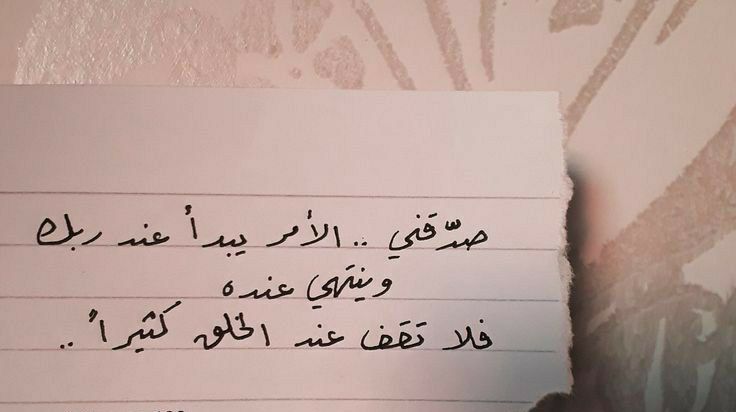 صدّقني .. الأمر يبدأ عند ربك
وينتهي عنده
فلا تقف عند الخلق كثيراً ..